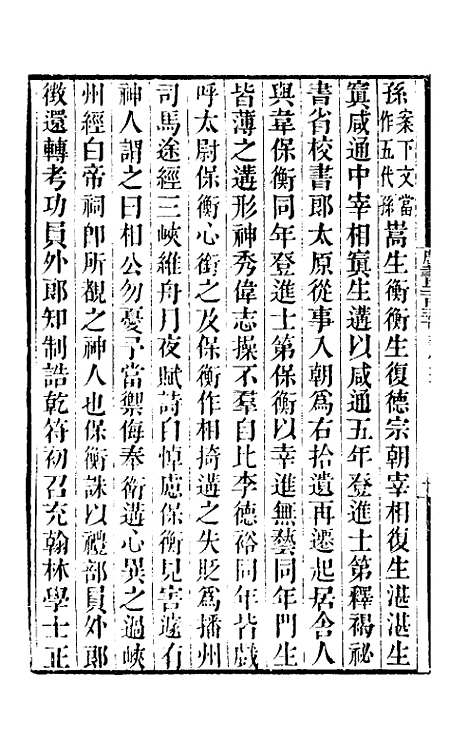 孫案下文當作五代孫嵩生衡衡生復德宗朝宰相復生湛湛生
寘咸通中宰相寘生遘以咸通五年登進士第釋褐祕
書省校書郎太原從事入朝爲右拾遺再遷起居舍人
與韋保衡同年登進士第保衡以幸進無藝同年門生
皆薄之遘形神秀偉志操不羣自比李德裕同年皆戲
呼太尉保衡心銜之及保衡作相掎遘之失貶爲播州
司馬途經三峽維舟月夜賦詩自悼慮保衡見害遽有
神人謂之曰相公勿憂予當禦侮奉衞遘心異之過峽
州經白帝祠卽所覩之神人也保衡誅以禮部員外郎
徵還轉考功員外郎知制誥乾符初召充翰林學士正